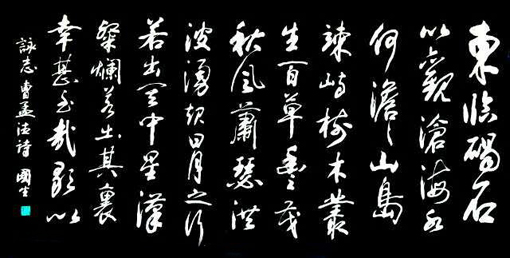 東臨碣石
以觀滄海水
何澹々山島
竦峙樹木叢
生百草豐茂
秋風蕭瑟洪
波湧起日月之行
若出其中星漢
粲爛若出其裏
幸甚至哉歌以
詠志 曹孟德詩 國生